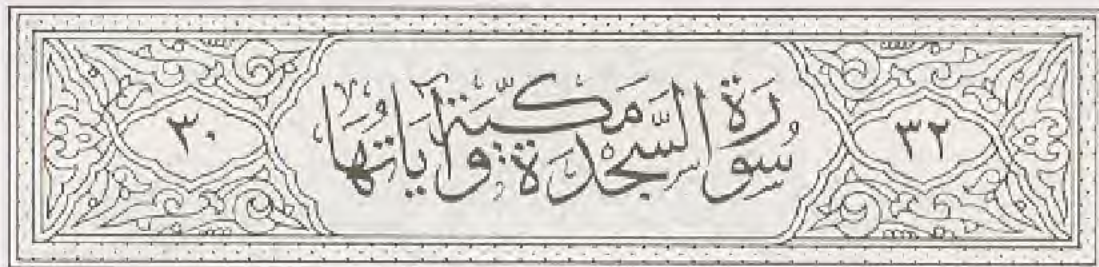 ٣٢
سُورَةُ السَّجْدَةِ مَكِّيَّةٌ وَآيَاتُهَا
٣٠